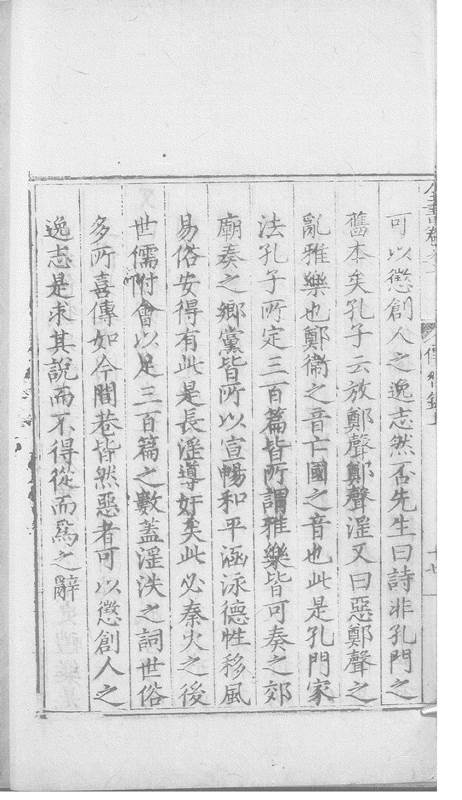 可以懲創人之逸志然否先生曰詩非孔門之
舊本矣孔子云放鄭聲鄭聲淫又曰惡鄭聲之
亂雅樂也鄭衞之音亡國之音也此是孔門家
法孔子所定三百篇皆所謂雅樂皆可奏之郊
廟奏之鄉黨皆所以宣暢和平涵泳德性移風
易俗安得有此是長淫導奸矣此必秦火之後
世儒附會以足三百篇之數蓋淫泆之詞世俗
多所喜傳如今閭巷皆然惡者可以懲創人之
逸志是求其說而不得從而爲之辭